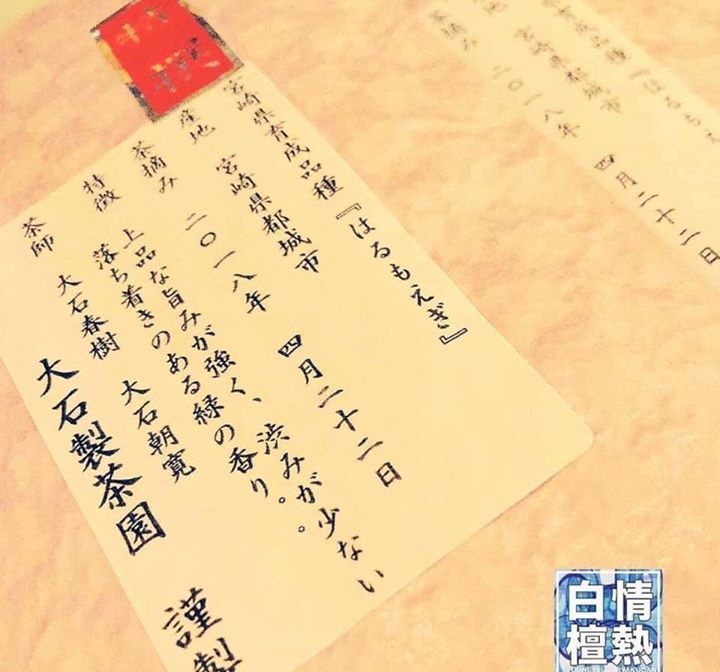 育成品種『はるもえ
地 宮崎県都城市
摘み 二〇一八年 四月二十二日
宮崎県育成品種『はるもえぎ』
産地 宮崎県都城市
茶摘み 二〇一八年 四月二十二日
特徴 上品な旨みが強く、渋みが少ない
落ち着きのある緑の香り。。
茶師 大石春樹 大石朝寛
大石製茶園 謹製
情熱
白檀